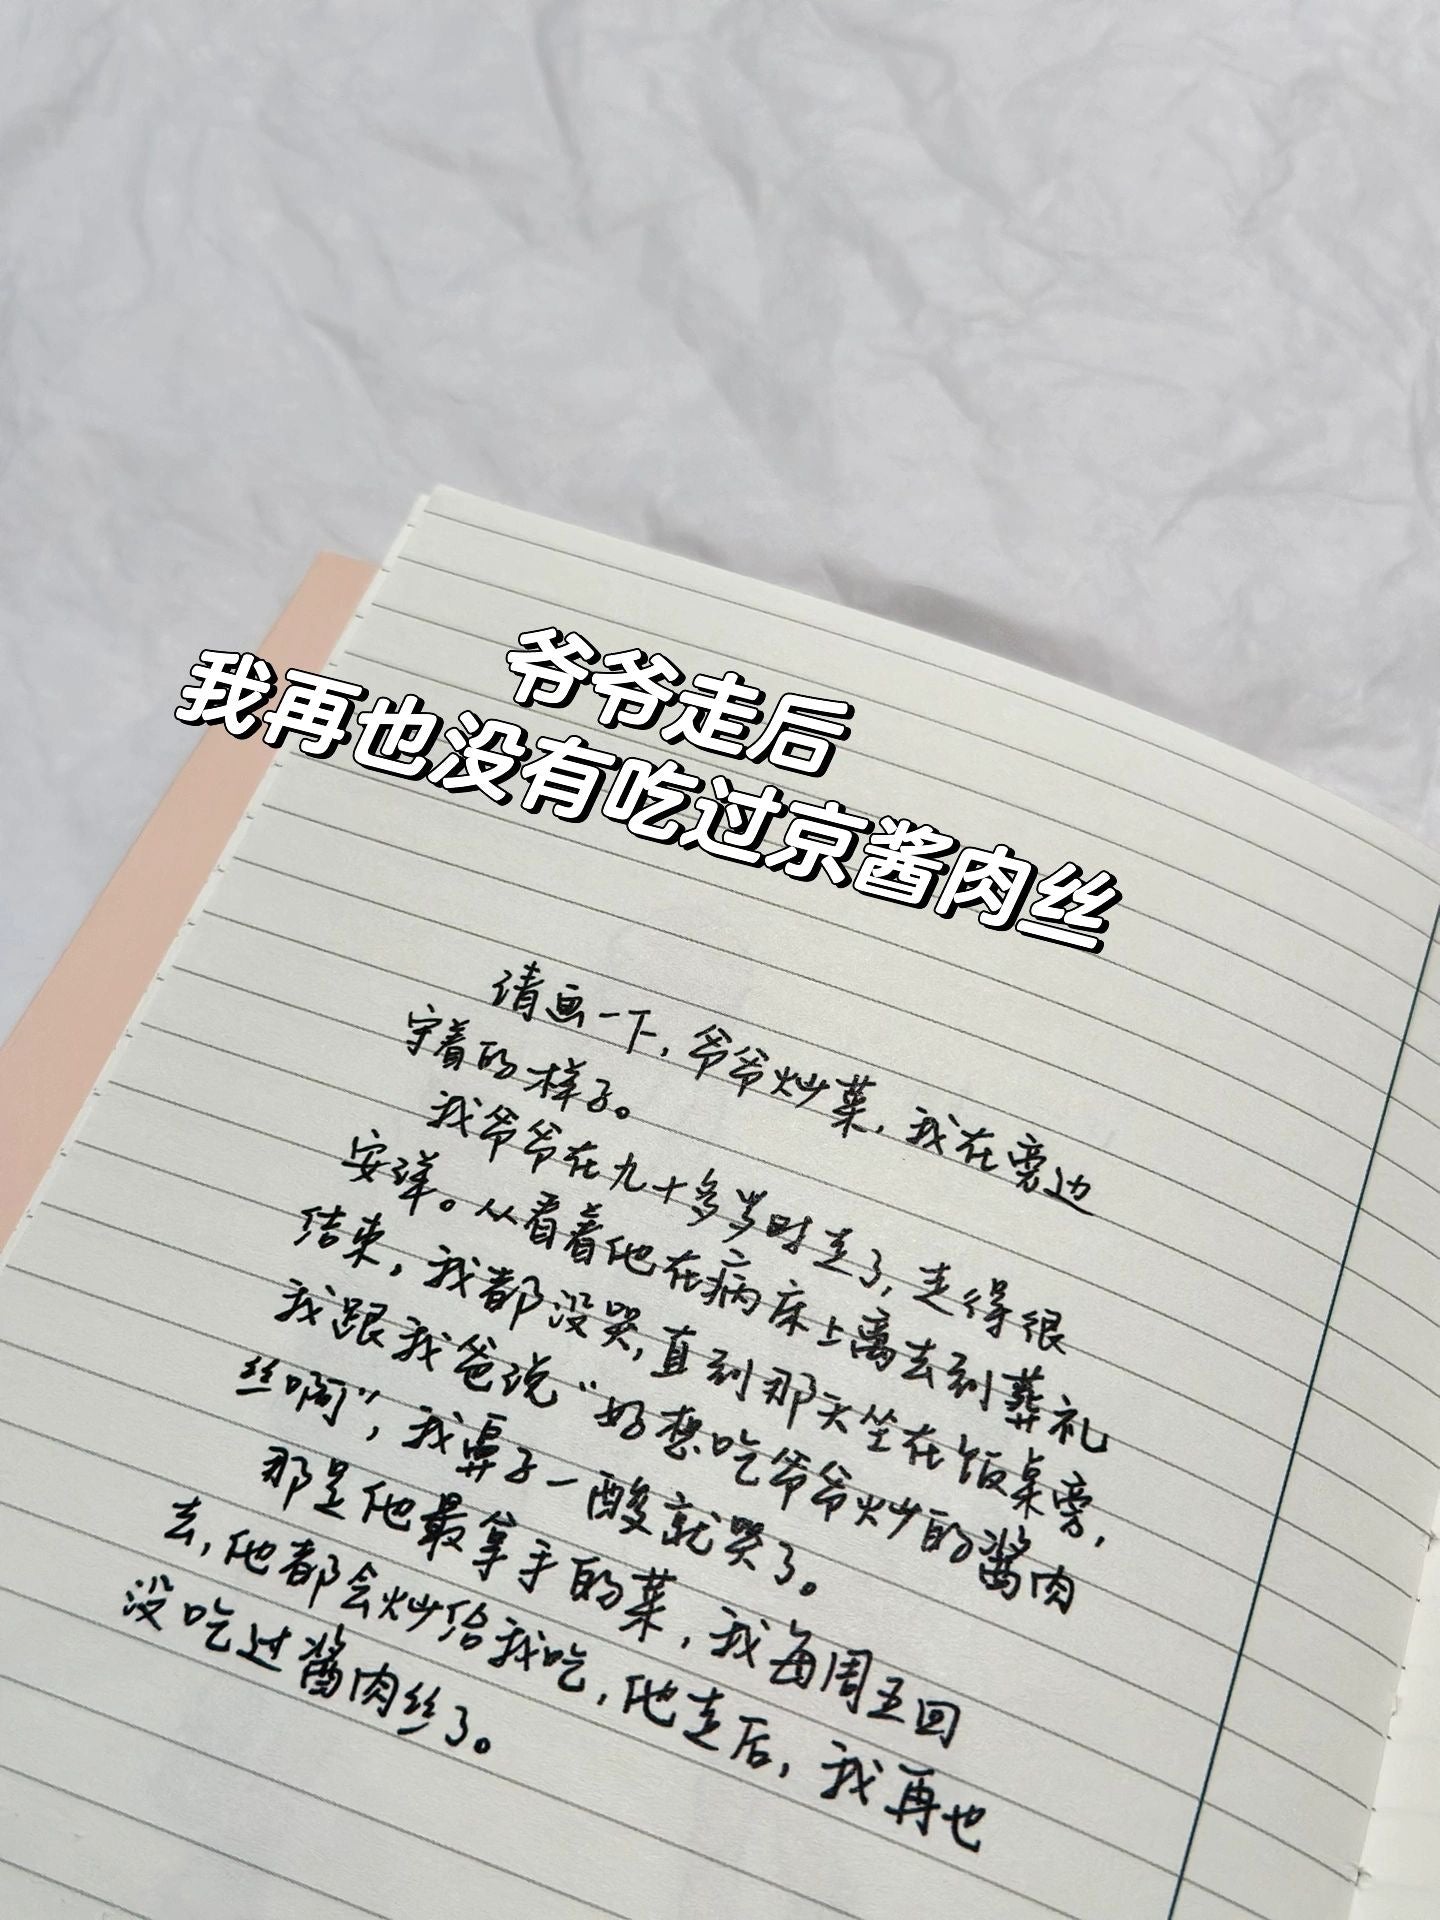 爷爷走后
我再也没有吃过京酱肉丝
请画一下，爷爷炒菜，我在旁边
守着的样子。
我爷爷在九十多岁时走了，走得很
安详。从看着他在病床上离去到葬礼
结束，我都没哭，直到那天坐在饭桌旁，
我跟我爸说“好想吃爷爷炒的酱肉
丝啊”，我鼻子一酸就哭了。
那是他最拿手的菜，我每周五回
去，他都会炒给我吃，他走后，我再也
没吃过酱肉丝了。